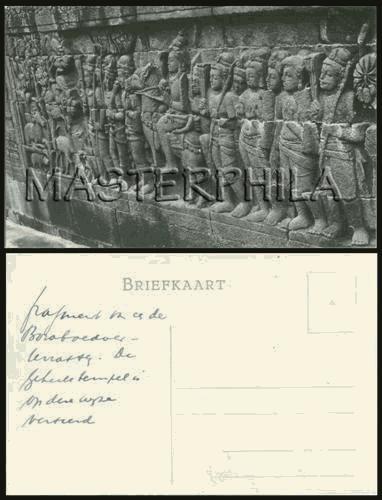 MASTERPHILA
BRIEFKAART
fragment van de
Boroboedoer-
terrassen. De
geheele tempel is
op deze wijze
versierd